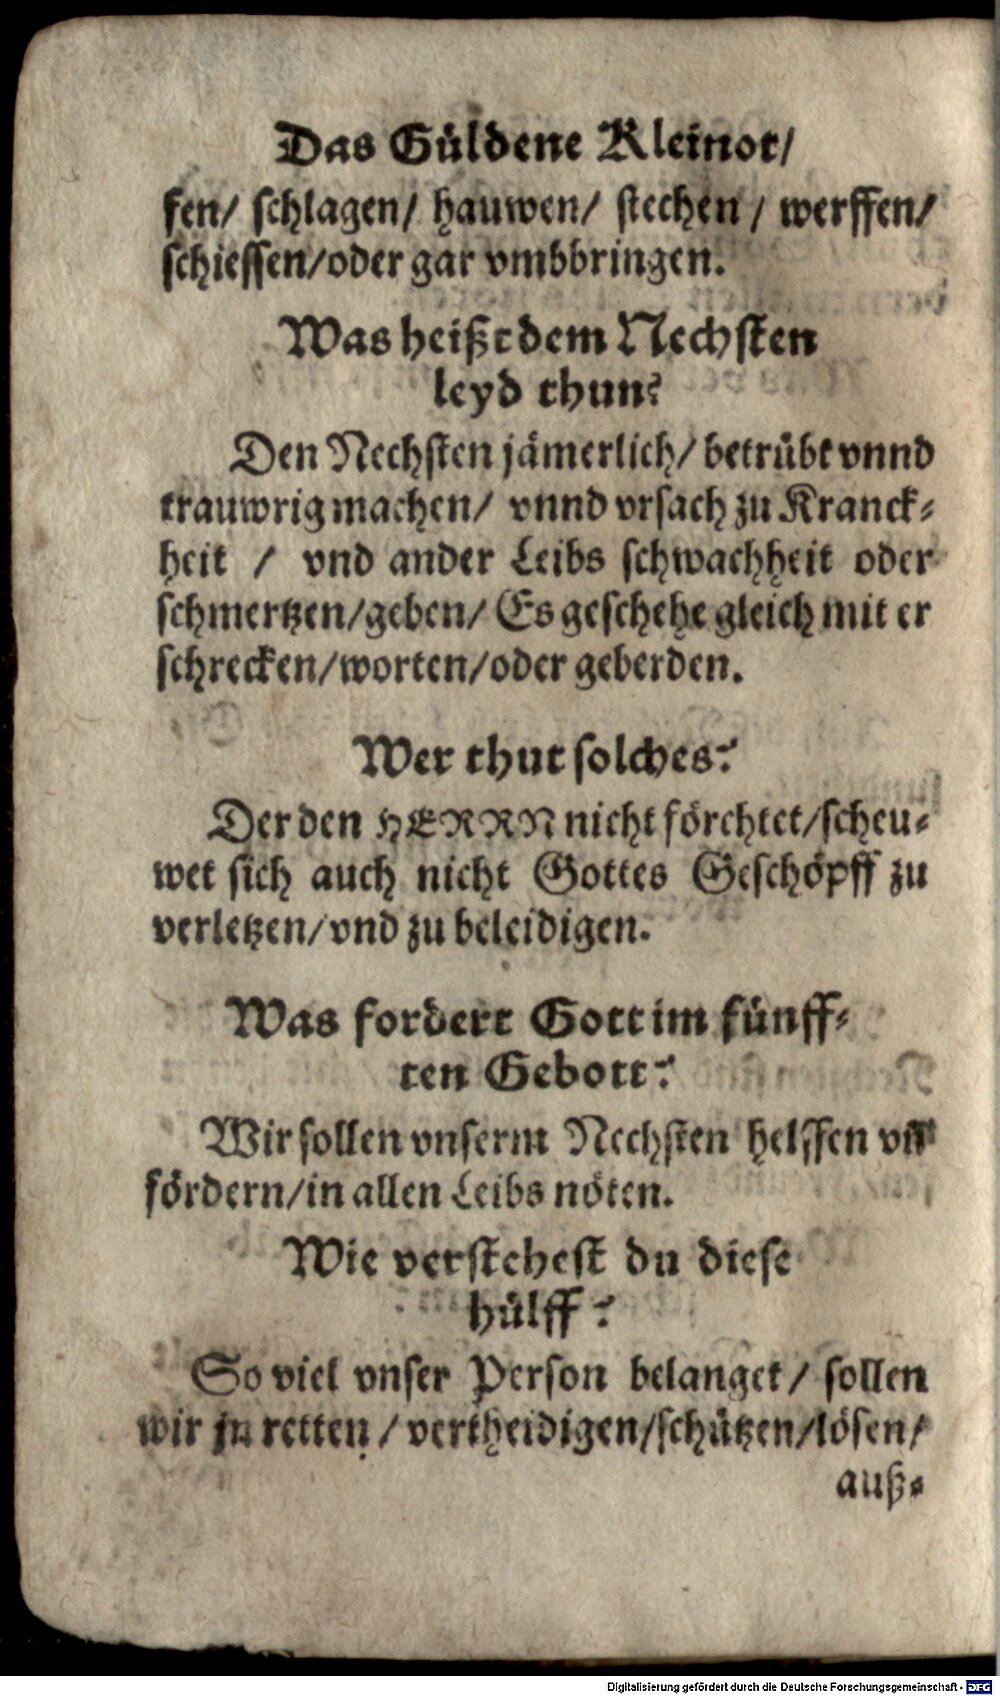 Das Güldene Kleinot/
fen/ schlagen/ hauwen/ stechen / werffen/
schiessen/oder gar vmbbringen.
Was heißt dem Nechsten
leyd thun?
Den Nechsten jämerlich/ betrübt vnnd
trauwrig machen/ vnnd vrsach zu Kranck-
heit / vnd ander Leibs schwachheit oder
schmertzen/geben/ Es geschehe gleich mit er
schrecken/worten/oder geberden.
Wer thut solches?
Der den HERRN nicht förchtet/scheu-
wet sich auch nicht Gottes Geschöpff zu
verletzen/vnd zu beleidigen.
Was fordert Gott im fünff-
ten Gebott?
Wir sollen vnserm Nechsten helffen vñ
fördern/in allen Leibs nöten.
Wie verstehest du diese
hülff?
So viel vnser Person belanget/ sollen
wir jn retten / vertheidigen/schützen/lösen/
auß-
Digitalisierung gefördert durch die Deutsche Forschungsgemeinschaft - DFG